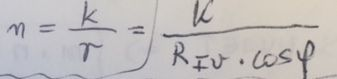 n = k/r = k/(R_{Iv} · cosφ)